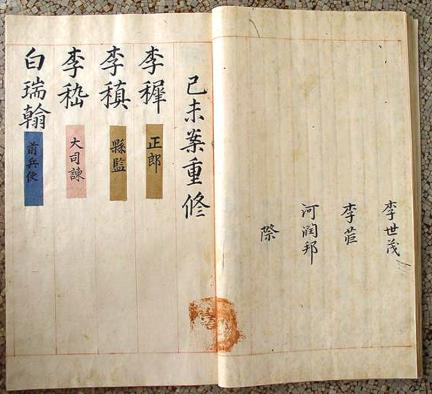 李世茂
李
河潤邦
際
己未案重修
李穉
正郎
李稹
縣監
李
大司諫
白瑞翰
前兵使